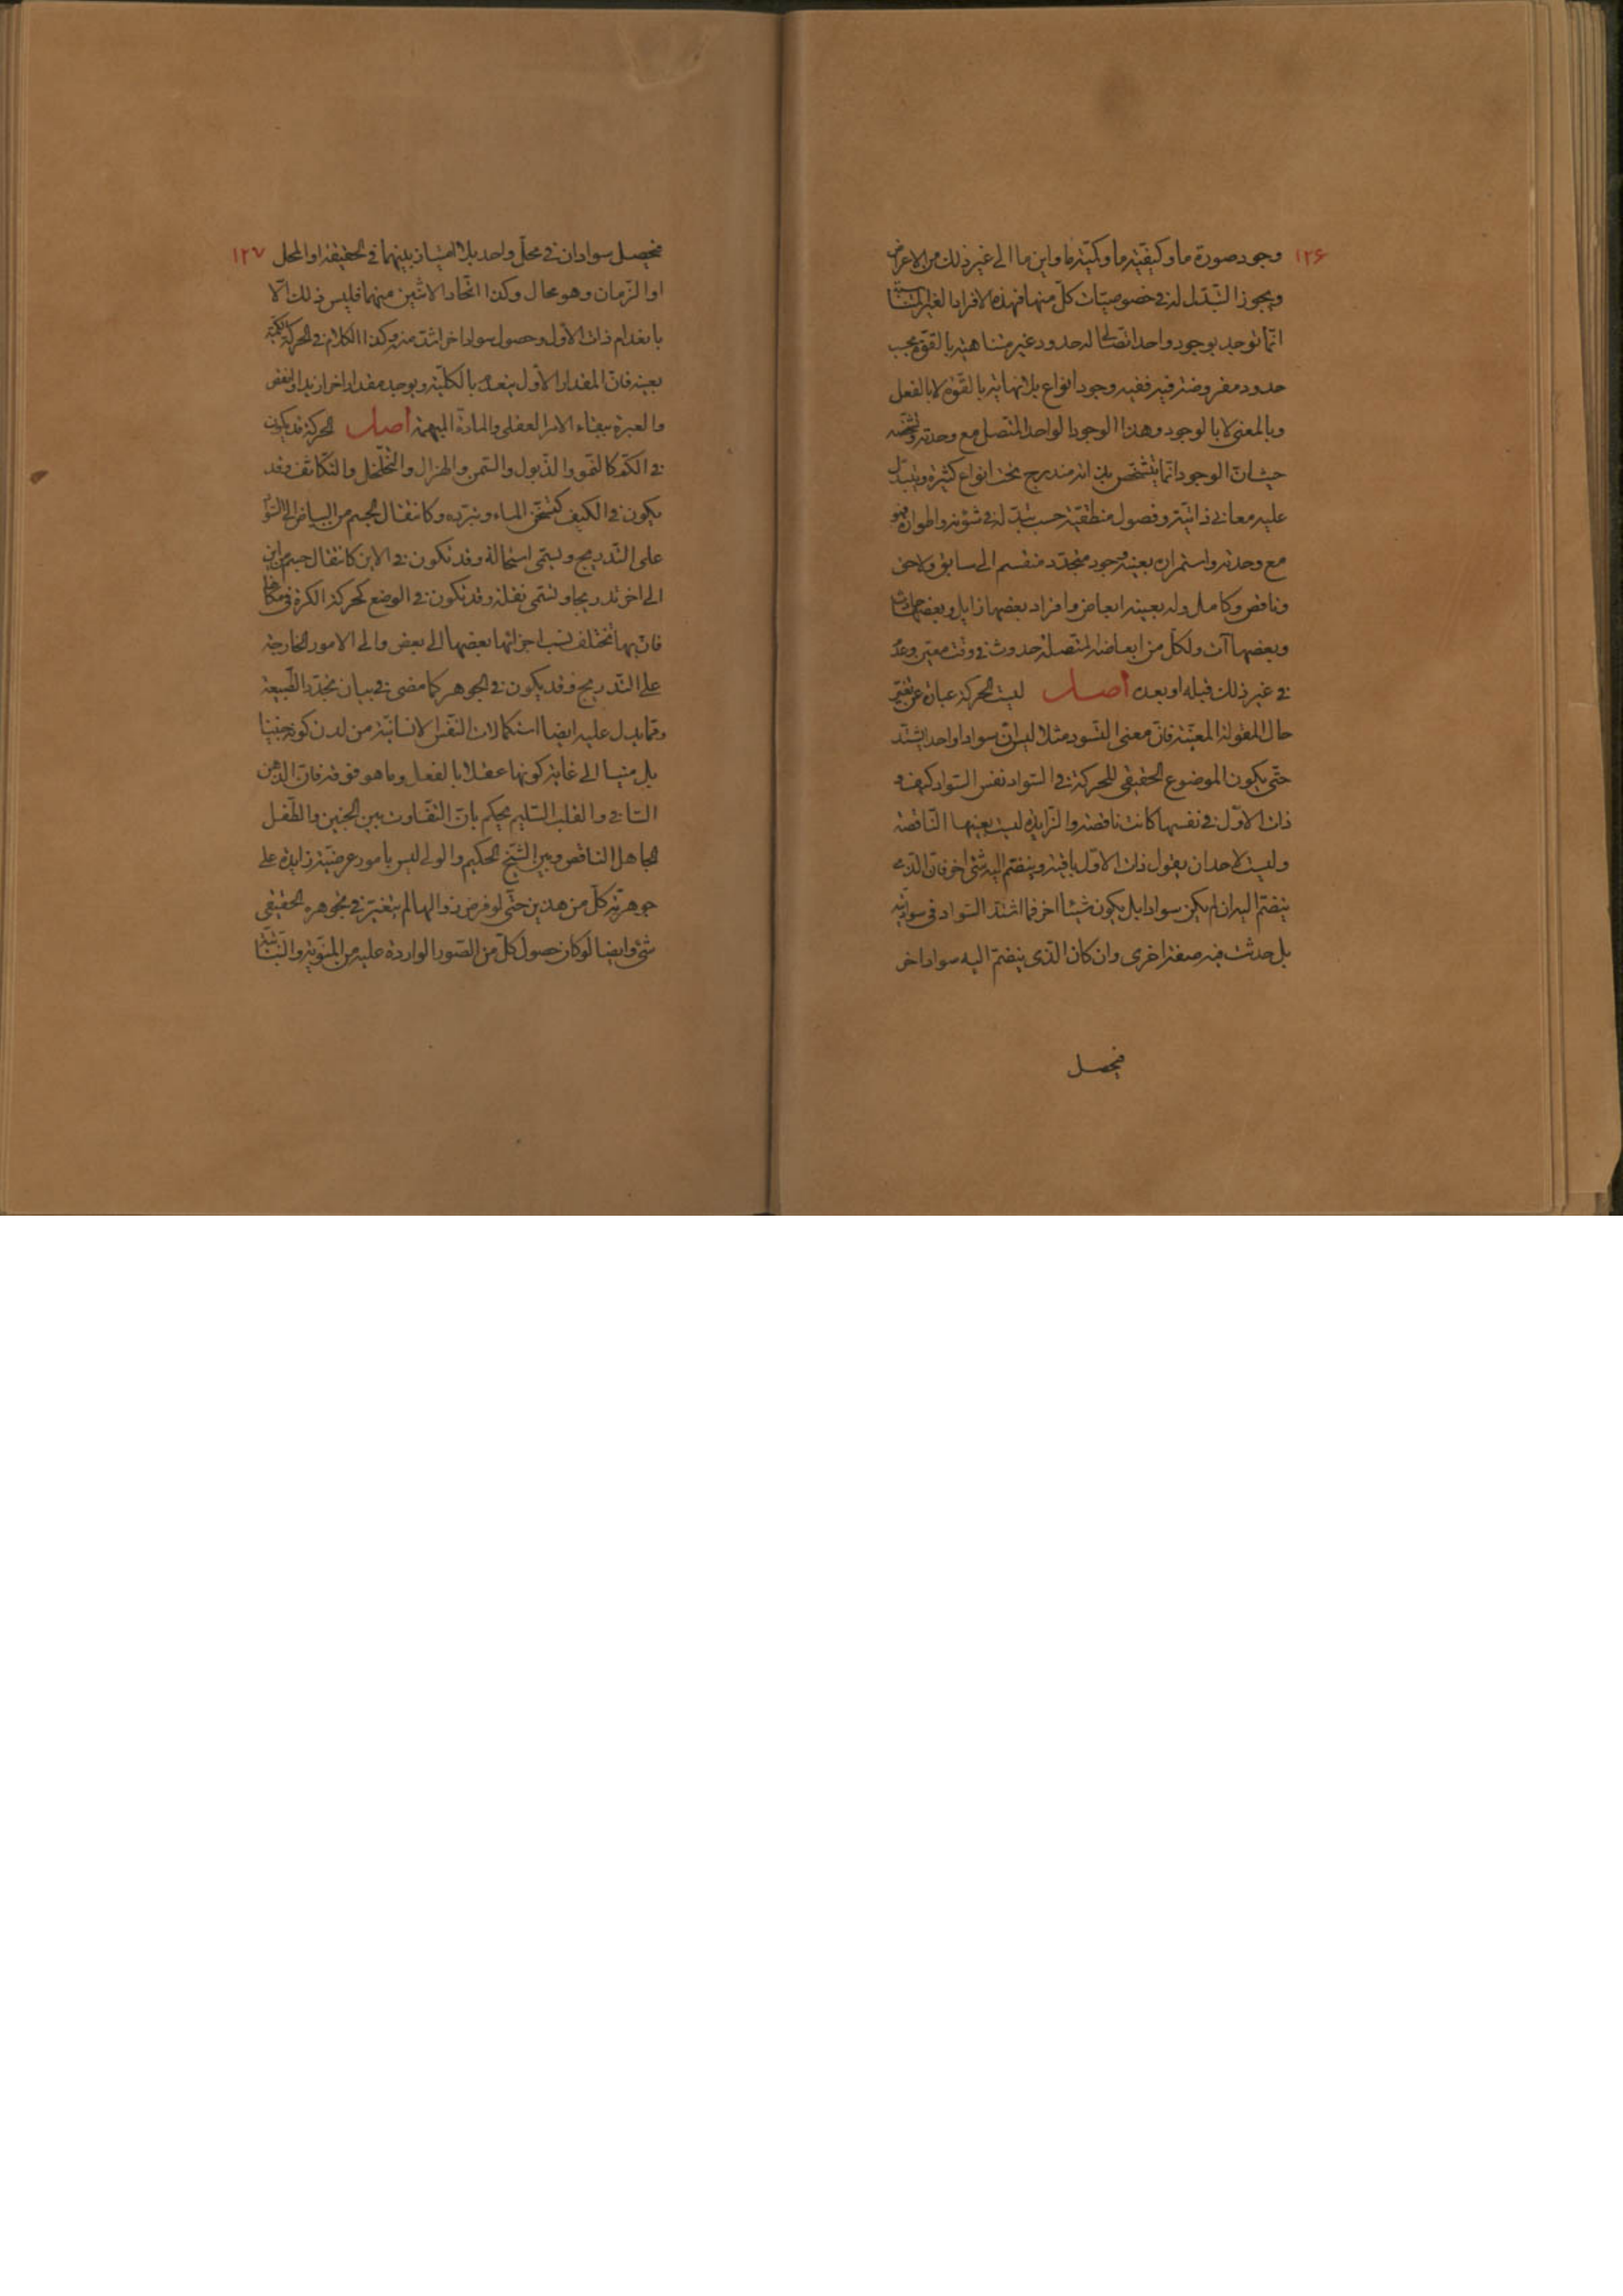 ١٢۶
وجود صورة ما وكيفيّة ما وكميّة ما واين ما الى غير ذلك من الاعراض
ويجوز التبدّل له فى خصوصيّات كلّ منها فهذه الافراد الغير المتناهية
انّما توجد بوجود واحد اتّصالى له حدود غير متناهية بالقوّة بحسب
حدود مفروضة فيه ففيه وجود انواع بلا نهاية بالقوّة لا بالفعل
وبالمعنى لا بالوجود وهذا الوجود الواحد المتّصل مع وحدته وتشخّصه
حيث انّ الوجود انّما يتشخّص بذاته مندرج تحت انواع كثيرة ويتبدّل
عليه معانى ذاتيّة وفصول منطقيّة حسب تبدّله فى شؤنه واطواره فهو
مع وحدته واستمراره بعينه وجود متجدّد منقسم الى سابق ولاحق
وناقص وكامل وله بعينه ابعاض وافراد بعضها زايل وبعضها حادث
وبعضها آت ولكلّ من ابعاضه المتّصلة حدوث فى وقت معيّن وعدم
فى غير ذلك قبله او بعده اصل ليست الحركة عبارة عن تغيّر
حال المقولة المعيّنة فانّ معنى التسود مثلا ليس انّ سوادا واحدا يشتدّ
حتّى يكون الموضوع الحقيقى للحركة فى السّواد نفس السّواد كيف و
ذات الاوّل فى نفسها كانت ناقصة والزّايدة ليست بعينها النّاقصة
وليست لاحد ان يقول ذات الاوّل باقية وينضمّ اليه شئ اخر فانّ الّذى
ينضمّ اليه ان لم يكن سوادا بل يكون شيئا اخر فما اشتدّ السّواد فى سواديّته
بل حدثت فيه صفة اخرى وان كان الّذى ينضمّ اليه سوادا اخر
فيحصل
١٢٧
فيحصل سوادان فى محلّ واحد بلا امتياز بينهما فى الحقيقة او المحل
او الزّمان وهو محال وكذا اتّحاد الاثنين منهما فليس ذلك الّا
بانعدام ذات الاوّل وحصول سواد اخر اشدّ منه وكذا الكلام فى الحركة الكميّة
بعينه فانّ المقدار الاوّل ينعدم بالكليّة ويوجد مقدار اخر ازيد او انقص
والعبرة ببقاء الامر العقلى والمادّة المبهمة اصل الحركة قد يكون
فى الكم كالنّمو والذّبول والسّمن والهزال والتّخلخل والتّكاثف وقد
يكون فى الكيف كتسخّن الماء وتبرّده وكانتقال الجسم من البياض الى السّواد
على التّدريج ويسمّى استحالة وقد تكون فى الاين كانتقال جسم من اين
الى اخر تدريجا وتسمّى نقلة وقد تكون فى الوضع كحركة الكرة فى مكانها
فان بها تختلف نسب اجزائها بعضها الى بعض والى الامور الخارجة
على التّدريج وقد يكون فى الجوهر كما مضى فى بيان تجدّد الطّبيعة
وممّا يدل عليه ايضا استكمالات النّفس الانسانيّة من لدن كونه جنينا
بل منيّا الى غاية كونها عقلا بالفعل وما هو فوقه فانّ الذّهن
الثانى والقلب السّليم يحكم بانّ التّفاوت بين الجنين والطّفل
الجاهل الناقص وبين الشّيخ الحكيم والولى ليس بامور عرضيّة زايدة على
جوهريّة كلّ من هذين حتّى لو فرض زوالها لم يتغيّر فى تجوهره الحقيقى
شئ وايضا لو كان حصول كلّ من الصّور الواردة عليه من المنويّة والنّباتيّة